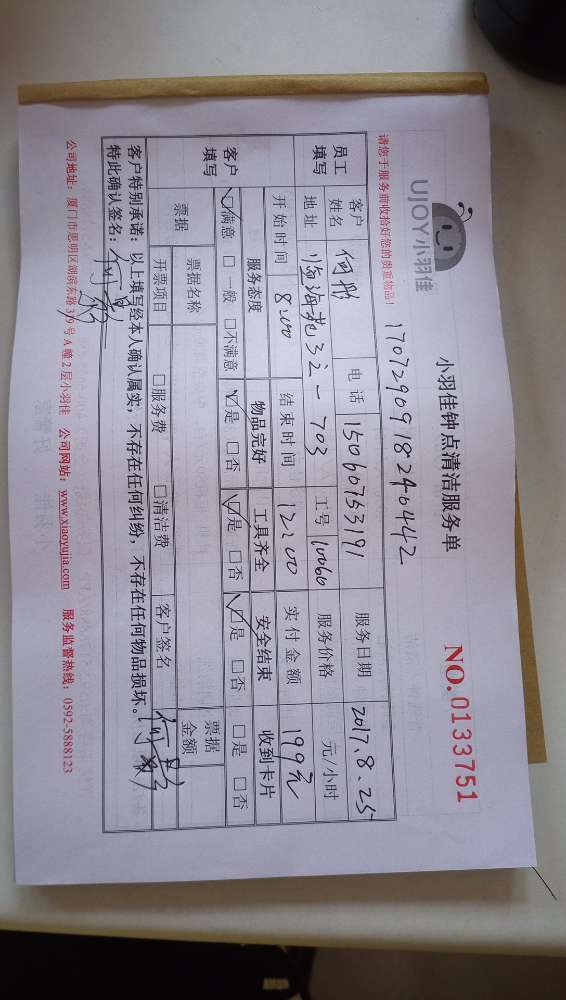 UJOY小羽佳
小羽佳钟点清洁服务单
NO.0133751
请您于服务前收拾好您的贵重物品!
1707290918240442
员工填写 客户姓名 何彤 电话 15060753191 服务日期 2017.8.25
地址 703 工号 10060 服务价格 元/小时
开始时间 8:00 结束时间 12:00 实付金额 199元
客户填写 服务态度 物品完好 工具齐全 安全结束 收到卡片
☑满意 □一般 □不满意 ☑是 □否 ☑是 □否 ☑是 □否 □是 □否
票据 票据名称 票据金额
开票项目 □服务费 □清洁费 客户签名
客户特别承诺:以上填写经本人确认属实,不存在任何纠纷,不存在任何物品损坏。
特此确认签名:
公司地址:厦门市思明区湖滨东路319号A幢2层小羽佳 公司网站:www.xiaoyujia.com 服务监督热线:0592-5888123